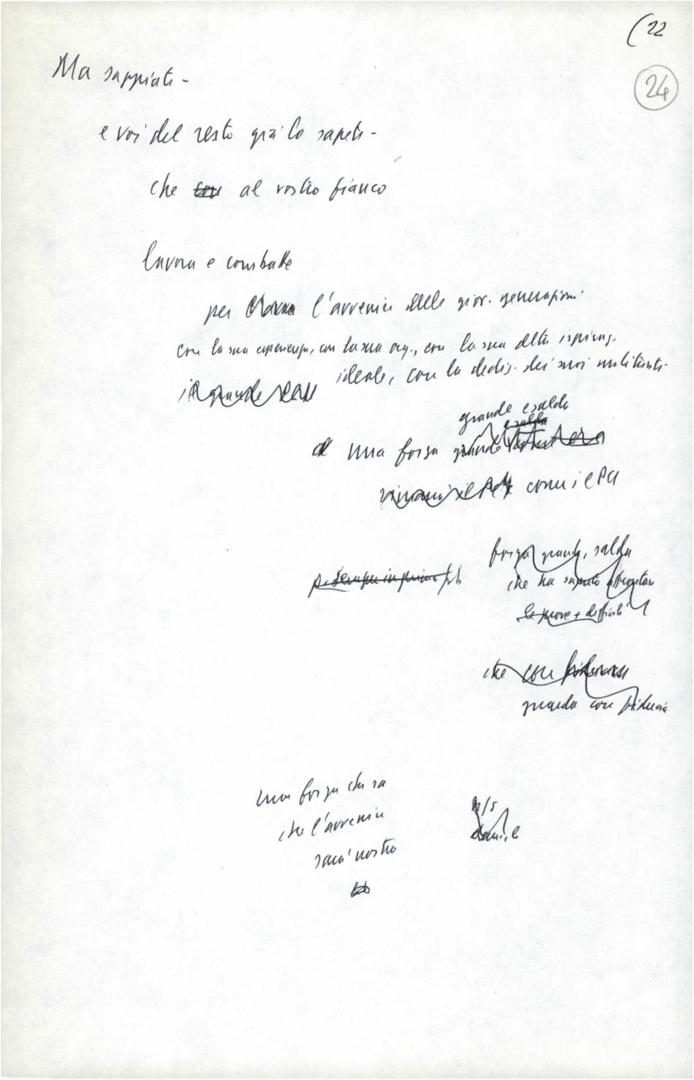 (22
24
Ma sappiate -
e voi del resto già lo sapete -
che con al vostro fianco
lavora e combatte
per l'avvenire delle giov. generazioni
con la sua esperienza, con la sua org., con la sua
ideale, con la dediz. dei suoi militanti
il grande
grande e salda
salda
una forza grande
come il PCI
forza grande, salda
che ha saputo affrontare
le prove + difficili
sempre in prima
che con
guarda con fiducia
una forza che sa
che l'avvenire
sarà nostro